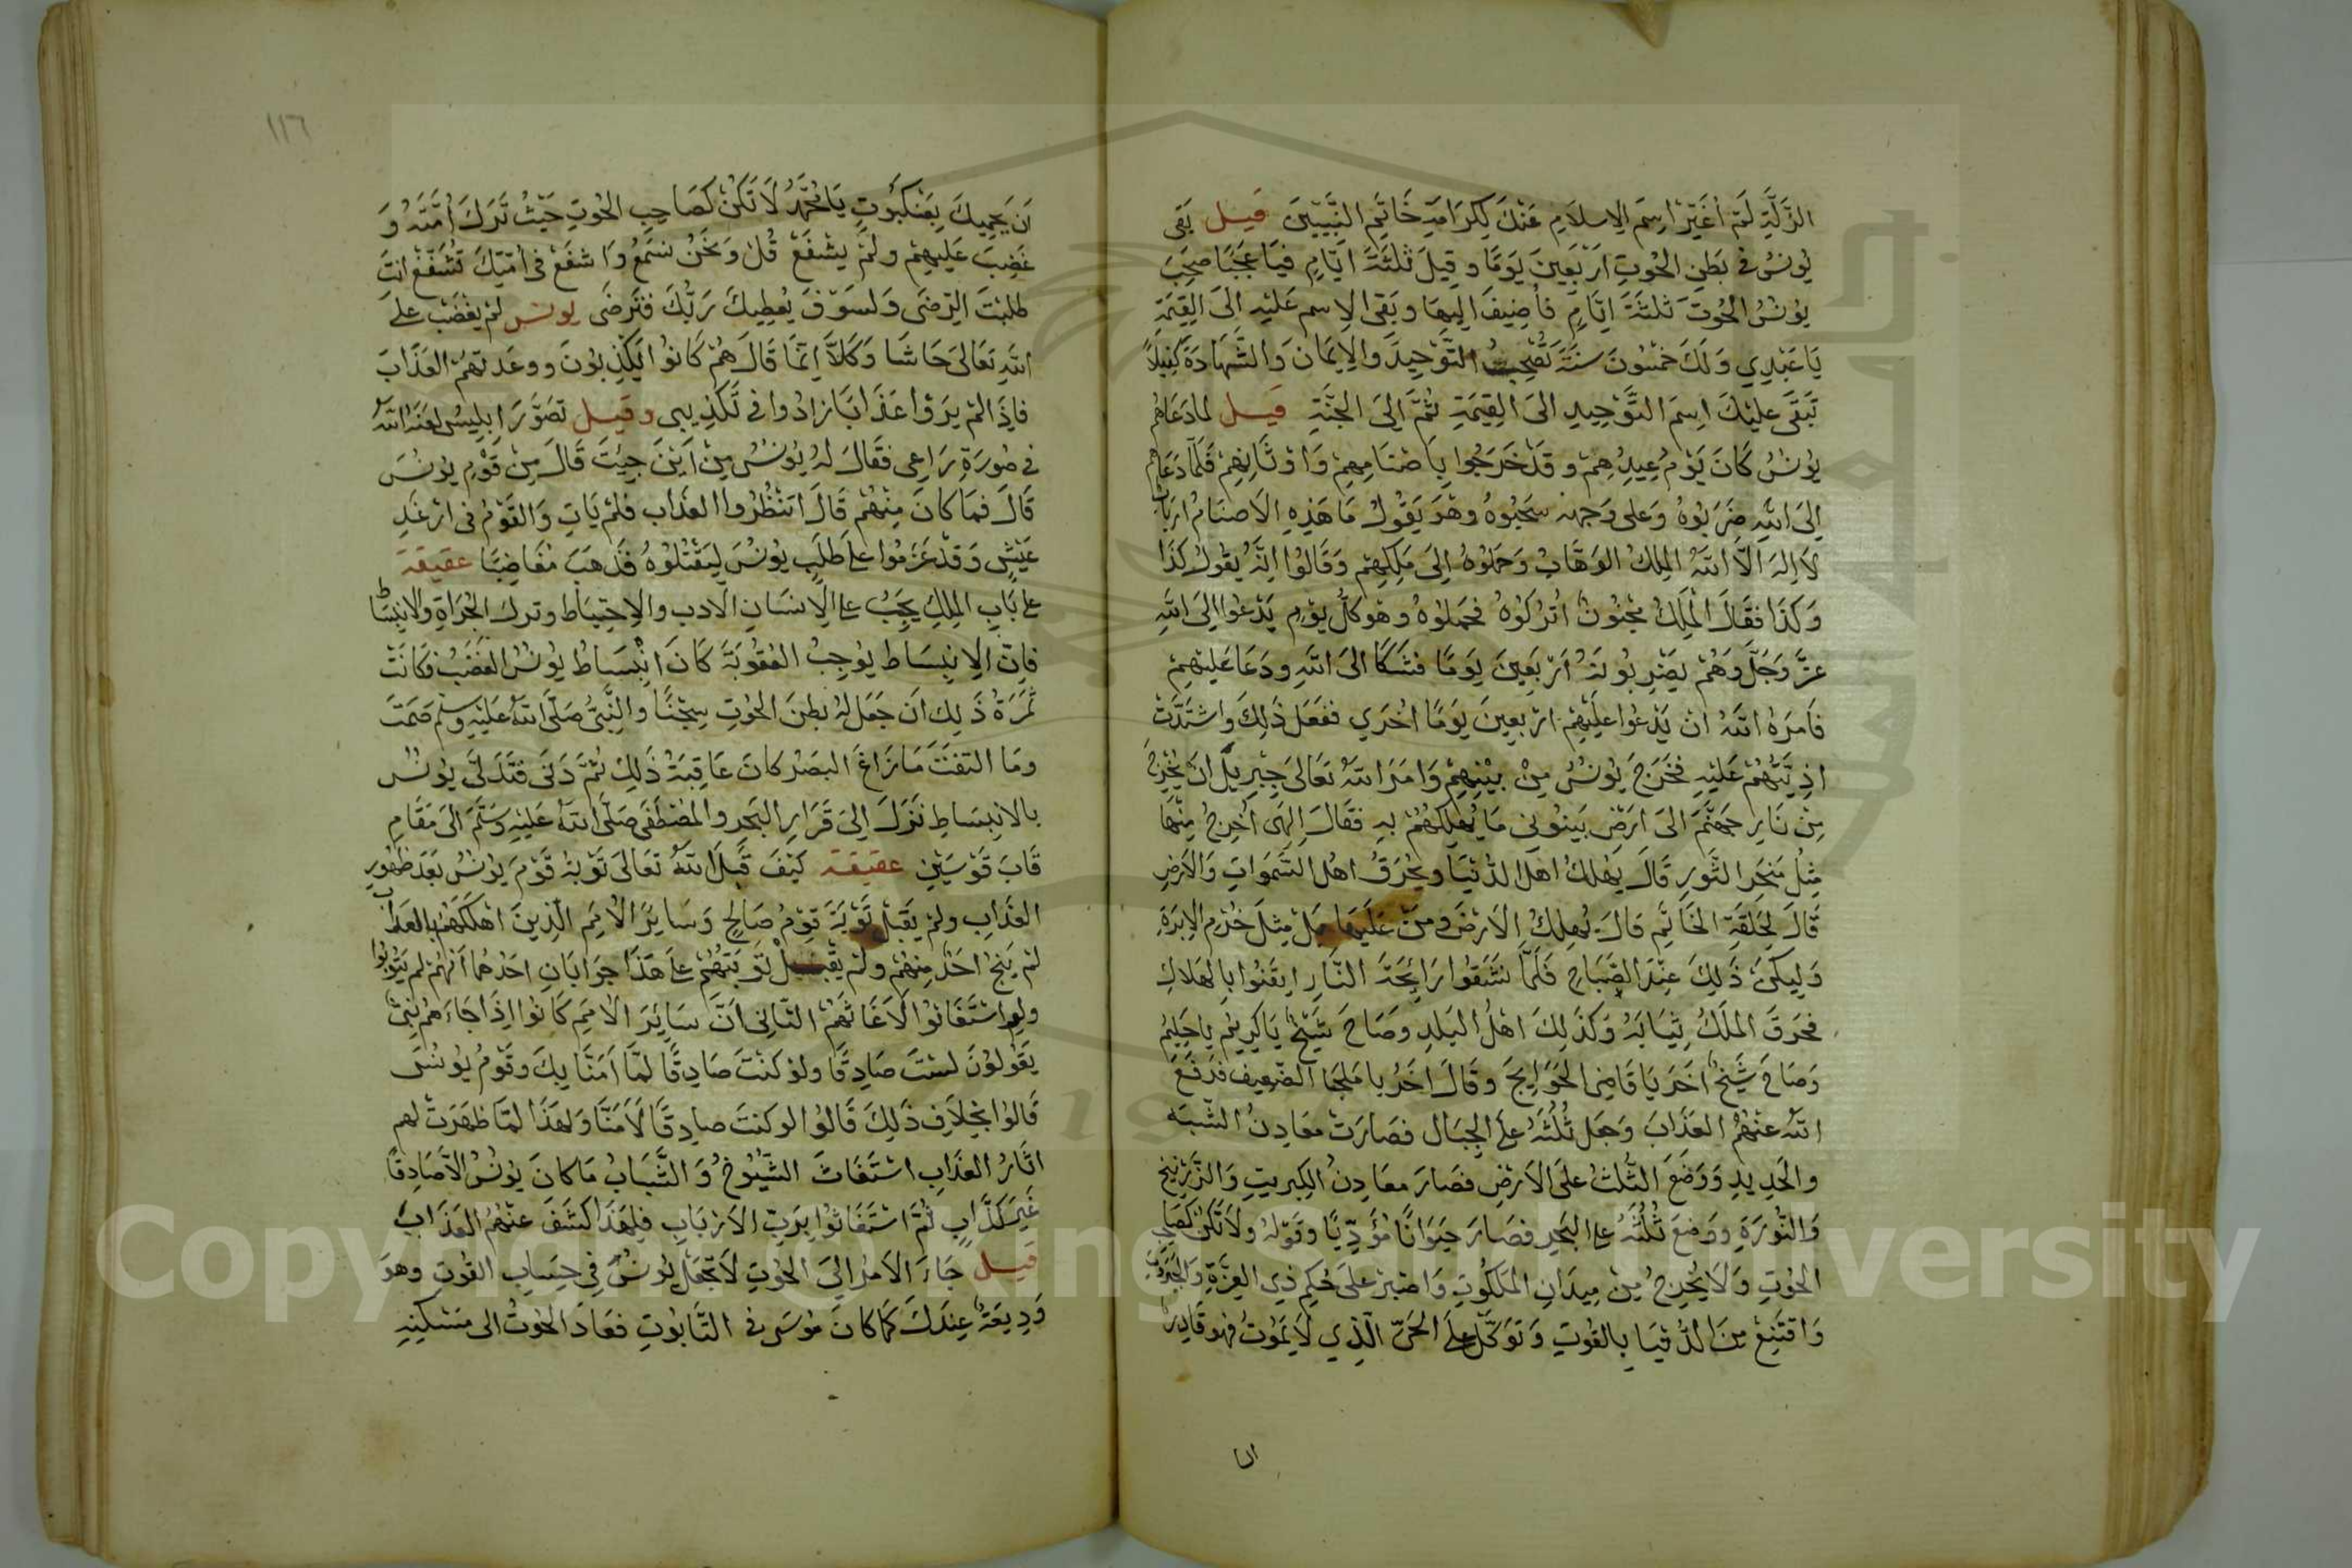 الزَّلَّةِ لَمْ أُغَيِّرْ اِسْمَ الاِسلَامِ عَنْكَ لِكَرَامَةِ خَاتِمِ النَّبِيِّينَ قيل بَقى
يُونسُ في بَطنِ الحُوتِ اَرْبَعِينَ يَومًا وقِيلَ ثَلثَةَ ايَّامٍ فَيَا عَجَبًا صَحِبَ
يُونُسُ الحُوتَ ثلثَةَ ايَّامٍ فاُضِيفَ اليهَا وبَقى الاِسم عَليْهِ الىَ القِيمَةِ
يَا عَبْدِي وَلَكَ خمسُونَ سنَةً تَصْحَبُ التَّوْحِيدَ والاِيمَانَ وَالشَّهَادَةَ كَيْلَا
تَبقَى عليْكَ اسمَ التَّوحِيدِ الىَ القِيمَةِ ثُمَّ اِلىَ الجنَّةِ قيل لما دَعَاهُم
يُونُسُ كَانَ يَوْمُ عِيدِهِمْ وقدْ خَرَجُوا بِاَصْنَامِهِمْ وَاَوْثَانِهِمْ فَلَمَّا دَعَاهُم
اِلىَ اللهِ ضَرَبُوهُ وَعلى وَجهِه سَحَبُوهُ وهُوَ يَقُولُ مَا هَذِهِ الاَصنَامُ اَربَابٌ
لاَ اِلهَ اِلاَّ اللهُ الملِكُ الوَهَّابُ وَحمَلُوهُ اِلىَ مَلِكِهِمْ وَقَالوُا اِنَّهُ يقُولُ كَذَا
وَكذَا فقَالَ الْملِكُ مجْنُونٌ اُترُكُوهُ فحَمَلُوهُ وهُو كلَّ يوْمٍ يَدْعُوا اِلىَ اللهِ
عزَّ وَجَلَّ وَهُمْ يَضرِبُونَهُ اَرْبَعِينَ يَومًا فشَكَا الىَ اللهِ ودَعَا عَليْهِمْ
فاَمرَهُ اللهُ انْ يَدْعُوا عليْهِمْ ارْبعِينَ يَومًا اُخرَي ففعَل ذَلِكَ واشتدَّتْ
اذِيَّتُهُمْ عَليْهِ فخَرَجَ يُونُسُ مِنْ بيْنِهِمْ وَاَمَرَ اللهُ تَعَالىَ جِبْرِيلَ انْ يُخْرِجَ
مِنْ نَارِ جَهنَّمَ الىَ اَرْضِ نَينُوي مَا يُهلِكُهُمْ بهِ فقَالَ اِلهَى اُخْرِجُ مِنْهَا
مِثْل مَنخَرِ الثَّورِ قَالَ يَهلكُ اهلُ الدُّنيَا ويُحْرَقُ اهلُ السَّمَواتِ وَالاَرضِ
قَالَ لِحَلقَةِ الخَاتَمِ قالَ يُهلِكُ الاَرْضَ ومنْ عَليهَا بَلْ مِثلَ خُرْمِ الاِبرَةِ
وَليكُنْ ذَلِكَ عِنْدَ الصَّبَاحِ فَلَمَّا نَشَقُوا رَائِحَةَ النَّارِ ايقَنُوا بالهَلاكِ
فحَرقَ الملكُ ثِيَابَهُ وَكذَلِكَ اهْلُ البَلدِ وصَاحَ شَيْخٌ يَا كَرِيمُ يا حَلِيمُ
وَصَاحَ شَيخٌ اخَرَ يَا قَاضِيَ الحَوَايجَ وقَالَ اخَرُ يا مَلجَا الضَّعِيف فدَفَعَ
اللهُ عنْهُمْ العَذَابَ وَجَعَل ثُلُثَهُ علَى الجِبَال فصَارَتْ مَعَادِنُ الشَّبَه
والحَدِيدِ وَوَضَعَ الثُّلثَ علَى الاَرْضِ فصَارَ معَادِنُ الكِبريتِ وَالزَّرْنِيخِ
وَالنُّورَةِ ووَضعَ ثُلثَهُ عَلى البَحرِ فصَارَ حيَوَانًا مُؤَذِّيًا وقوْلهُ ولاَ تَكنْ كَصَاحِبِ
الحُوتِ وَلاَ يخُرجُ مِنْ مِيدَانِ الملَكوُتِ وَاصْبِرْ علَى حُكمِ ذِي العِزَّةِ وَالجَبَرُوت
وَاقتَنِعْ مِنَ الدُّنيَا بالقُوتِ وَتَوكَّلْ علَى الحَيِّ الَّذِي لاَ يَمُوتُ فهوَ قَادِرٌ
ان
١١٦
اَن يَحمِيكَ بِعَنكَبُوتٍ يَا مُحَمَّدُ لاَ تَكُنْ كَصَاحِبِ الحُوتِ حَيْثُ تَرَكَ اُمَّتَهُ وَ
غَضِبَ عَلَيهِمْ ولَمْ يشْفَعْ قُلْ وَنَحْنُ نسْمَعُ وَاشفَعْ في اُمَّتِكَ تُشَفَّعْ انتَ
طلبْتَ الرِّضَى وَلَسَوْفَ يُعطِيكَ رَبُّكَ فتَرْضَى يونس لم يَغْضَبْ علىَ
اللهِ تَعَالىَ حَاشَا وَكَلاَّ اِنَّمَا قَالَ هُمْ كَانُوا يَكْذِبُونَ ووعَدتَهُمُ العَذَابَ
فاِذَا لمْ يرَوْا عَذَابًا زادُوا في تَكْذِيبى وقيل تَصَوَّرَ اِبلِيسُ لعَنَهُ اللهُ
في صُورَةِ رَاعِى فقَالَ لهُ يُونُسُ مِنْ اَيْنَ جِيْتَ قَالَ مِنْ قَوْمِ يُونُسَ
قَالَ فَمَا كَانَ مِنْهُمْ قَالَ انتَظَرُوا العذَاب فلمْ يَاتِ وَالقَوْمُ في ارْغَدِ
عَيْشٍ وَقدْ عَزَمُوا علىَ طلَبِ يونُسَ لِيَقتُلُوهُ فذهَبَ مُغَاضِبًا عقيقة
علىَ بَابِ الملِكِ يَجِبُ علىَ الاِنسَانِ الادب والاِحتِيَاط وتركَ الجُرَاةِ والانبِسَاط
فاِنَّ الاِنبِسَاط يُوجِبُ العُقُوبَةَ كَانَ انْبِسَاطُ يُونُسُ الغَضَبُ فكَانَتْ
ثمَرَةُ ذَلِكَ انَ جَعَل لهُ بطنَ الحُوتِ سِجْنًا والنَّبِيُّ صَلَّى اللهُ عَليْهِ وسَلم صَمَتَ
ومَا التفَتَ مَا زَاغَ البصَرُ كانَ عَاقِبَةُ ذَلِكَ ثمَّ دَنَى فتَدَلَّى يُونُسُ
بالانبِسَاطِ نَزَلَ اِلىَ قَرَارِ البَحرِ والمصْطَفَى صَلَّى اللهُ عَليْهِ وسَلَّمَ الىَ مَقَامِ
قَابَ قَوْسَيْنِ عقيقة كَيْفَ قَبِلَ اللهُ تعَالىَ تَوْبَةَ قَوْمَ يُونُسُ بَعْدَ ظهُورِ
العَذَابِ ولمْ يَقبَلْ تَوْبَةَ قَوْمُ صَالِحٍ وَسَايِرُ الاُمَمِ الَّذِينَ اَهْلَكَهُمْ بالعَذاب
لمْ يَنجُ احَدٌ مِنهُمْ ولمْ يَقْبلْ تَوبَتَهُمْ علىَ هَذَا جوَابَانِ احدُهُما اَنهُمْ لم يَتُوبُوا
ولو استَغَاثوُا لاَغَاثَهُمْ الثَّانِي اَنَّ سَايِرَ الاُمَمِ كَانُوا اِذَا جَاءَهُم نَبِيٌّ
يَقُولُونَ لسْتَ صَادِقًا ولوْ كنْتَ صَادِقًا لمَّا اَمَنَّا بِكَ وقَوْمُ يُونسَ
قَالُوا بخِلاَفِ ذَلِكَ قَالُوا لو كنتَ صادِقًا لاَمَنَّا وَلهَذَا لمَّا ظهَرَتْ لهم
اثَارُ العَذَابِ اسْتَغَاثَ الشُّيُوخُ وَالشَّبَابُ مَا كانَ يُونُسُ الاَّ صَادِقًا
غَيرَ كذَّابٍ ثُمَّ اسْتَغَاثوُا بِرَبِّ الاَرْبَابِ فلِهَذَا كشَفَ عنْهُمُ العَذَابَ
قيل جَاءَ الاَمرُ اِلىَ الحُوتِ لاَ تَجعَلْ يُونُسَ فِي حِسَابِ القُوتِ وهوَ
وَدِيعَةٌ عِندَكَ كَمَا كانَ مُوسَى في التَّابُوتِ فعَادَ الحُوتُ الى مَسْكنِهِ
Copyright © King Saud University